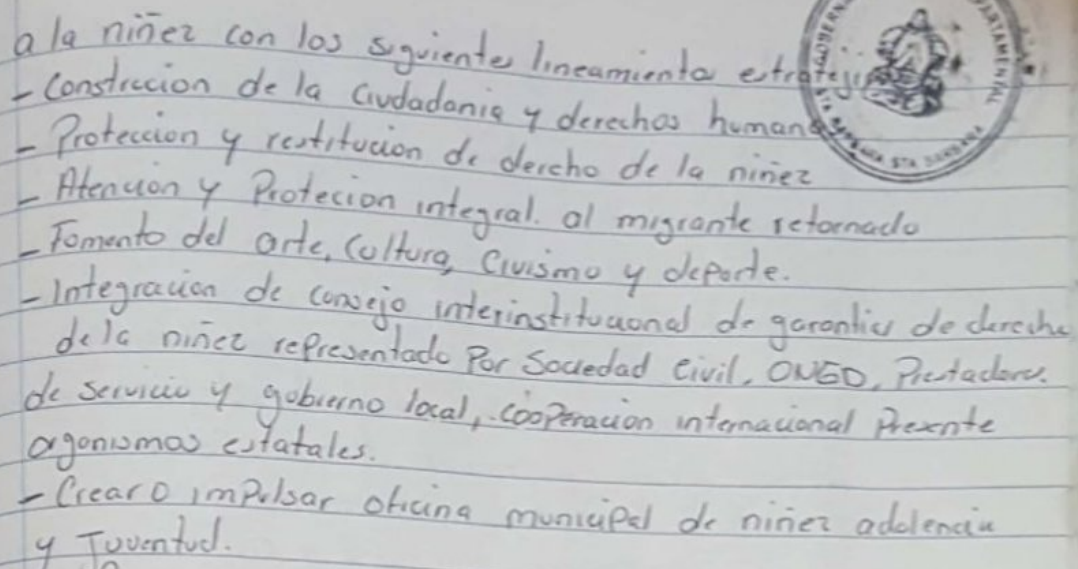 a la niñez con los siguientes lineamiento estrategi
- Construccion de la Ciudadania y derechos humano
- Proteccion y restitucion de dercho de la niñez
- Atencion y Protecion integral. al migrante retornado
- Fomento del arte, Cultura, Civismo y deporte.
- Integracion de consejo interinstitucional de garantia de derecho
de la niñez representado Por Sociedad Civil, ONGD, Prestadores.
de servicio y gobierno local, cooperacion internacional Presente
organismos estatales.
- Crear o imPulsar oficina municipal de niñez adolencia
y Juventud.
DEPARTAMENTAL
STA BARBARA